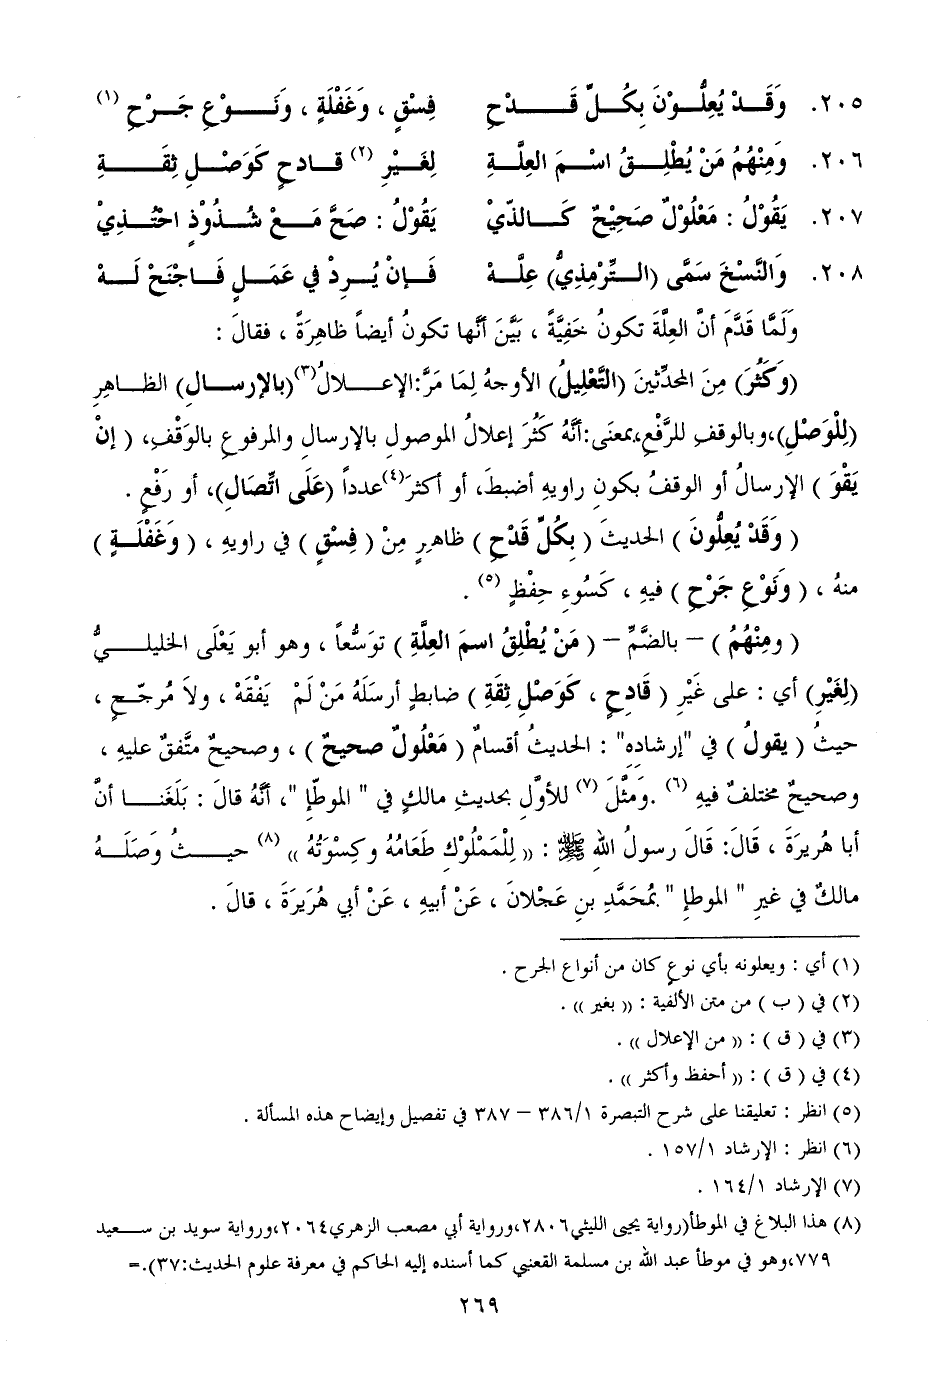 ٢٠٥. وَقَدْ يُعِلُّوْنَ بِكُلِّ قَــدْحِ فِسْقٍ ، وَغَفْلَةٍ ، وَنَــوْعِ جَــرْحِ (١)
٢٠٦. وَمِنْهُمُ مَنْ يُطْلِــقُ اسْــمَ العِلَّةِ لِغَيْرِ (٢) قــادحٍ كَوَصْــلِ ثِقَــةِ
٢٠٧. يَقُوْلُ : مَعْلُوْلٌ صَحِيْحٌ كَــالذّيْ يَقُوْلُ : صَحَّ مَــعْ شُذُوْذٍ احْتُــذِيْ
٢٠٨. وَالنَّسْخَ سَمَّى (التِّــرْمِذِيُّ) عِلَّهْ فَــإنْ يُــرِدْ في عَمَــلٍ فَــاجْنَحْ لَــهْ
وَلَمَّا قَدَّمَ أنَّ العِلَّةَ تكونُ خَفِيَّةً ، بَيَّنَ أنَّها تكونُ أيضاً ظاهِرَةً ، فقالَ :
(وَكَثُرَ) مِنَ المحدِّثينَ (التَّعْلِيلُ) الأوجهُ لِمَا مَرَّ:الإعــلالُ(٣)(بالإرســالِ) الظــاهِرِ
(لِلْوَصْلِ)،وبالوقفِ للرَّفْعِ،بمعنَى:أنَّهُ كثُرَ إعلالُ الموصولِ بالإرسالِ والمرفوعِ بالوَقْفِ، ( إنْ
يَقْوَ ) الإرسالُ أو الوقفُ بكونِ راويهِ أضبطَ، أو أكثرَ(٤)عدداً (عَلَى اتِّصَالِ)، أو رَفْعٍ .
( وَقَدْ يُعِلُّونَ ) الحديثَ ( بِكُلِّ قَدْحِ ) ظاهرٍ مِنْ ( فِسْقٍ ) في راويهِ ، ( وَغَفْلَةٍ )
منهُ ، ( وَنَوْعِ جَرْحِ ) فيهِ ، كَسُوءِ حِفْظٍ (٥) .
( ومِنْهُمُ ) – بالضَّمِّ – ( مَنْ يُطْلِقُ اسمَ العِلَّةِ ) توَسُّعاً ، وهو أبو يَعْلَى الخليلــيُّ
(لِغَيْرِ) أي : على غَيْرِ ( قَادِحٍ ، كَوَصْلِ ثِقَةِ ) ضابطٍ أرسَلَهُ مَنْ لَمْ يَفْقَهْ ، ولاَ مُرجِّــحٍ ،
حيثُ ( يقولُ ) في "إرشاده" : الحديثُ أقسامٌ ( مَعْلُولٌ صحيحٌ ) ، وصحيحٌ متَّفقٌ عليهِ ،
وصحيحٌ مختلفٌ فيهِ (٦) .وَمَثَّلَ (٧) للأوَّلِ بحديثِ مالكٍ في " الموطّإِ "، أنَّهُ قالَ : بَلَغَنــا أنَّ
أبا هُريرَةَ ، قَالَ: قَالَ رسولُ اللهِ ﷺ : « لِلْمَمْلُوْكِ طَعَامُهُ وكِسْوَتُهُ » (٨) حيــثُ وَصَلَــهُ
مالكٌ في غيرِ " الموطإِ " بمُحَمَّدِ بنِ عَجْلانَ ، عَنْ أبيهِ ، عَنْ أبي هُرَيرَةَ ، قالَ .
(١) أي : ويعلونه بأي نوعٍ كان من أنواع الجرح .
(٢) في ( ب ) من متن الألفية : « بغير » .
(٣) في ( ق ) : « من الإعلال » .
(٤) في ( ق ) : « أحفظ وأكثر » .
(٥) انظر : تعليقنا على شرح التبصرة ٣٨٦/١ – ٣٨٧ في تفصيل وإيضاح هذه المسألة .
(٦) انظر : الإرشاد ١٥٧/١ .
(٧) الإرشاد ١٦٤/١ .
(٨) هذا البلاغ في الموطأ(رواية يحيى الليثي٢٨٠٦،ورواية أبي مصعب الزهري٢٠٦٤،ورواية سويد بن ســعيد
٧٧٩،وهو في موطأ عبد الله بن مسلمة القعنبي كما أسنده إليه الحاكم في معرفة علوم الحديث:٣٧).=
٢٦٩